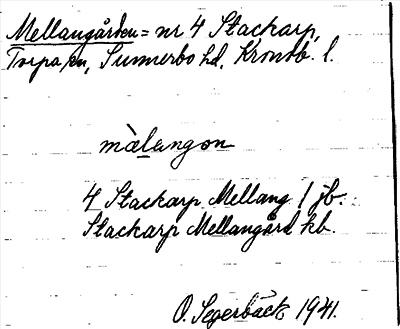 Mellangården = nr 4 Stackarp,
Torpa sn, Sunnerbo hd, Kronob. l.
màlangon
4 Stackarp Mellang 1 jb.
Stackarp Mellangård kb.
O. Segerbäck 1941.